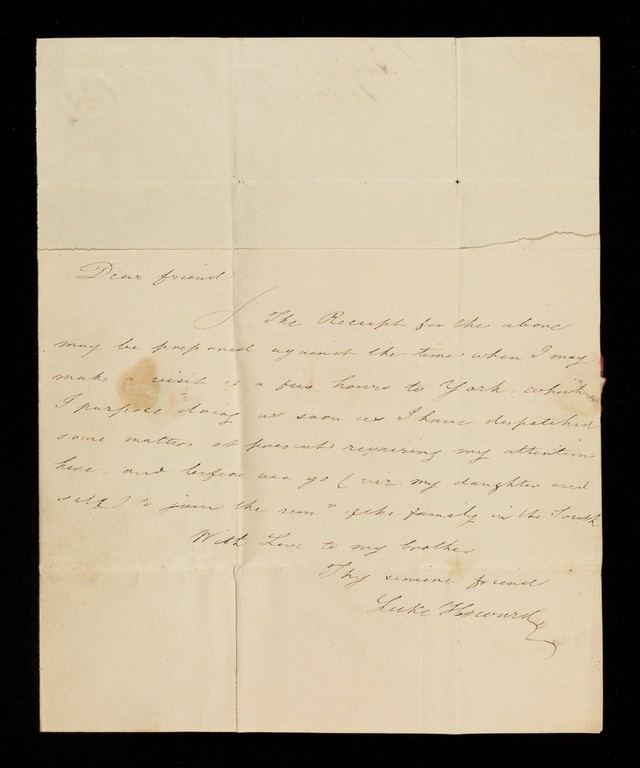 Dear friend
The Receipt for the above
may be prepared against the time when I may
make a visit of a few hours to York, which
I purpose doing as soon as I have despatched
some matters at present requiring my attention
here, and before we go (viz. my daughter and
self) to join the rem^r of the family in the South
With Love to my brother
Thy sincere friend
Luke Howard